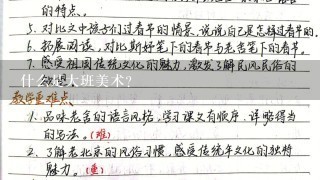 的特点。
5. 对比文中孩子们过春节的情景,说说自己是怎样过春节的。
6. 拓展阅读,对比斯好笔下的春节与老舍笔下的春节。
7. 感受祖国传统文化的魅力,激发了解民风民俗的
什么是大班美术?
教学重难点
1. 品味老舍的语言风格,学习课文有顺序、详略得当
的写法。(难)
2. 了解老北京的风俗习惯,感受传统年文化的独特
魅力。(重)